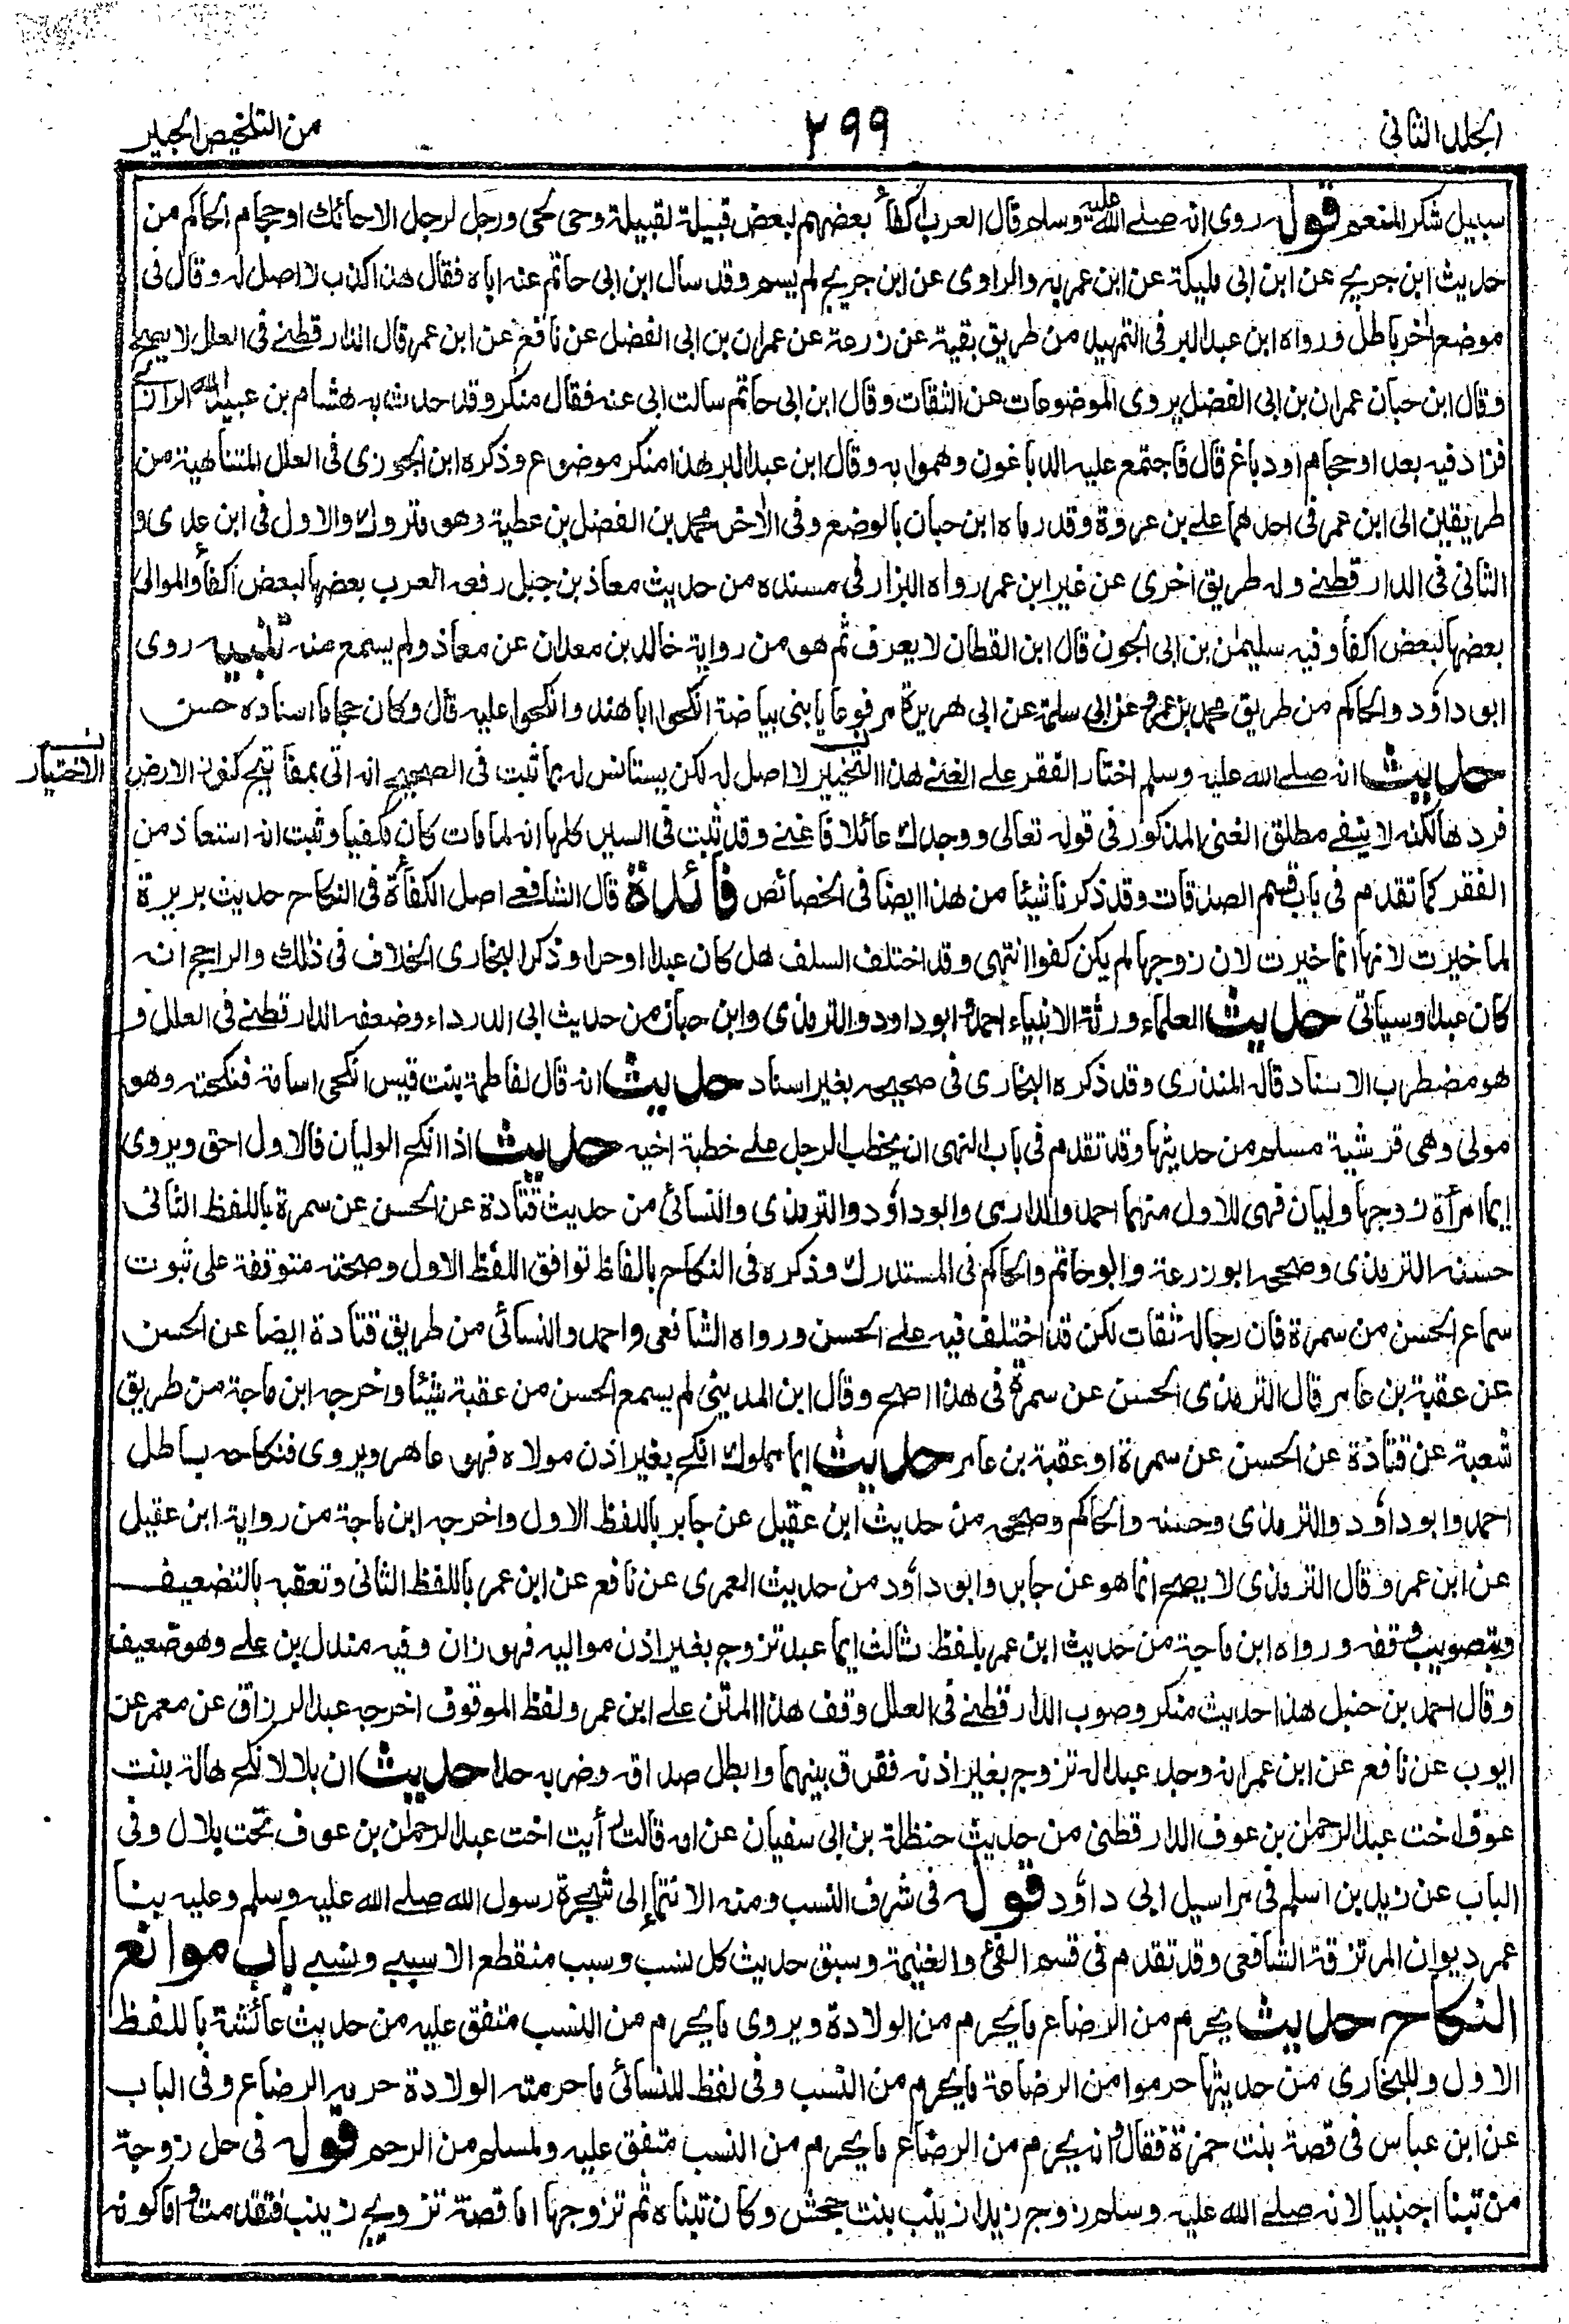 الجلد الثاني
٢٩٩
من التلخيص الحبير
سبيل شكر المنعم قوله روى انه صلے الله عليه وسلم قال العرب اكفأ بعضهم لبعض قبيلة لقبيلة وحى لحى ورجل لرجل الا حائك او حجام الحاكم من
حديث ابن جريج عن ابن ابى مليكة عن ابن عمر به والراوى عن ابن جريج لم يسم وقد سال ابن ابى حاتم عنه اباه فقال هذا كذب لا اصل له وقال فى
موضع اخر باطل ورواه ابن عبد البر فى التمهيد من طريق بقية عن زرعة عن عمران بن ابى الفضل عن نافع عن ابن عمر قال الدارقطنے فى العلل لا يصح
وقال ابن حبان عمران بن ابى الفضل يروى الموضوعات عن الثقات وقال ابن ابى حاتم سالت ابى عنه فقال منكر وقد حدث به هشام بن عبيد الله الرازى
فزاد فيه بعد او حجام او دباغ قال فاجتمع عليه الدباغون وهموا به وقال ابن عبد البر هذا منكر موضوع وذكره ابن الجوزى فى العلل المتناهية من
طريقين الى ابن عمر فى احدهما علے بن عروة وقد رماه ابن حبان بالوضع وفى الاخر محمد بن الفضل بن عطية وهو متروك والاول فى ابن عدى و
الثانى فى الدارقطنے وله طريق اخرى عن غير ابن عمر رواه البزار فى مسنده من حديث معاذ بن جبل رفعه العرب بعضها لبعض اكفأ والموالى
بعضها لبعض اكفأ وفيه سليمٰن بن ابى الجون قال ابن القطان لا يعرف ثم هو من رواية خالد بن معدان عن معاذ ولم يسمع منه تنبيه روى
ابو داؤد والحاكم من طريق محمد بن عمرو عن ابى سلمة عن ابى هريرة مرفوعا يا بنى بياضة انكحوا ابا هند وانكحوا عليه قال وكان حجاما اسناده حسن
حديث انه صلے الله عليه وسلم اختار الفقر علے الغنے هذا التخيير لا اصل له لكن يستانس له بما ثبت فى الصحيح انه اتى بمفاتيح كنوز الارض
الاختيار
فردها لكنه لا ينفے مطلق الغنى المذكور فى قوله تعالى ووجدك عائلا فاغنے وقد ثبت فى السير كلها انه لما مات كان مكفيا وثبت انه استعاذ من
الفقر كما تقدم فى باب قسم الصدقات وقد ذكرنا شيئا من هذا ايضا فى الخصائص فائدة قال الشافعے اصل الكفأة فى النكاح حديث بريرة
لما خيرت لانها انما خيرت لان زوجها لم يكن كفوا انتهى وقد اختلف السلف هل كان عبدا او حرا وذكر البخارى الخلاف فى ذلك والراجح انه
كان عبدا وسياتى حديث العلماء ورثة الانبياء احمد وابو داود والترمذى وابن حبان من حديث ابى الدرداء وضعفه الدارقطنے فى العلل و
هو مضطرب الاسناد قاله المنذرى وقد ذكره البخارى فى صحيحه بغير اسناد حديث انه قال لفاطمة بنت قيس انكحى اسامة فنكحته وهو
مولى وهى قرشية مسلم من حديثها وقد تقدم فى باب النهى ان يخطب الرجل علے خطبة اخيه حديث اذا انكح الوليان فالاول احق ويروى
ايما امرأة زوجها وليان فهى للاول منهما احمد والدارمى وابو داؤد والترمذى والنسائى من حديث قتادة عن الحسن عن سمرة باللفظ الثانى
حسنه الترمذى وصححه ابو زرعة وابو حاتم والحاكم فى المستدرك وذكره فى النكاح بالفاظ توافق اللفظ الاول وصحته متوقفة على ثبوت
سماع الحسن من سمرة فان رجاله ثقات لكن قد اختلف فيه علے الحسن ورواه الشافعى واحمد والنسائى من طريق قتادة ايضا عن الحسن
عن عقبة بن عامر قال الترمذى الحسن عن سمرة فى هذا اصح وقال ابن المدينى لم يسمع الحسن من عقبة شيئا واخرجه ابن ماجة من طريق
شعبة عن قتادة عن الحسن عن سمرة او عقبة بن عامر حديث ايما مملوك انكح بغير اذن مولاه فهو عاهر ويروى فنكاحه باطل
احمد وابو داؤد والترمذى وحسنه والحاكم وصححه من حديث ابن عقيل عن جابر باللفظ الاول واخرجه ابن ماجة من رواية ابن عقيل
عن ابن عمر وقال الترمذى لا يصح انما هو عن جابر وابو داؤد من حديث العمرى عن نافع عن ابن عمر باللفظ الثانى وتعقبه بالتضعيف
وبتصويب وقفه ورواه ابن ماجة من حديث ابن عمر بلفظ ثالث ايما عبد تزوج بغير اذن مواليه فهو زان وفيه مندل بن علے وهو ضعيف
وقال احمد بن حنبل هذا حديث منكر وصوب الدارقطنے فى العلل وقف هذا المتن علے ابن عمر ولفظ الموقوف اخرجه عبد الرزاق عن معمر عن
ايوب عن نافع عن ابن عمر انه وجد عبدا له تزوج بغير اذنه ففرق بينهما وابطل صداقه وضربه حدا حديث ان بلالا نكح هالة بنت
عوف اخت عبد الرحمٰن بن عوف الدارقطنى من حديث حنظلة بن ابى سفيان عن امه قالت رأيت اخت عبد الرحمٰن بن عوف تحت بلال وفى
الباب عن زيد بن اسلم فى مراسيل ابى داؤد قوله فى شرف النسب ومنه الانتماء الى شجرة رسول الله صلے الله عليه وسلم وعليه بنا
عمر ديوان المرتزقة الشافعى وقد تقدم فى قسم الفئ والغنيمة وسبق حديث كل نسب وسبب منقطع الا سببے ونسبے باب موانع
النكاح حديث يحرم من الرضاع ما يحرم من الولادة ويروى ما يحرم من النسب متفق عليه من حديث عائشة باللفظ
الاول وللبخارى من حديثها حرموا من الرضاعة ما يحرم من النسب وفى لفظ للنسائى ما حرمته الولادة حرمه الرضاع وفى الباب
عن ابن عباس فى قصة بنت حمزة فقال وانه يحرم من الرضاع ما يحرم من النسب متفق عليه ولمسلم من الرحم قوله فى حل زوجة
من تبنا اجنبيا لانه صلے الله عليه وسلم زوج زيدا زينب بنت جحش وكان تبناه ثم تزوجها اما قصة تزويج زينب فتقدمت واما كونه